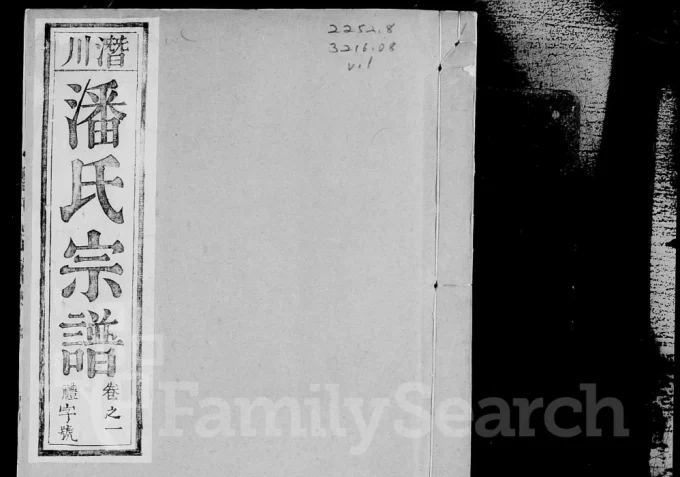 潛川
潘氏宗譜
卷之一
禮字號
2252.8
3216.08
v.1
FamilySearch